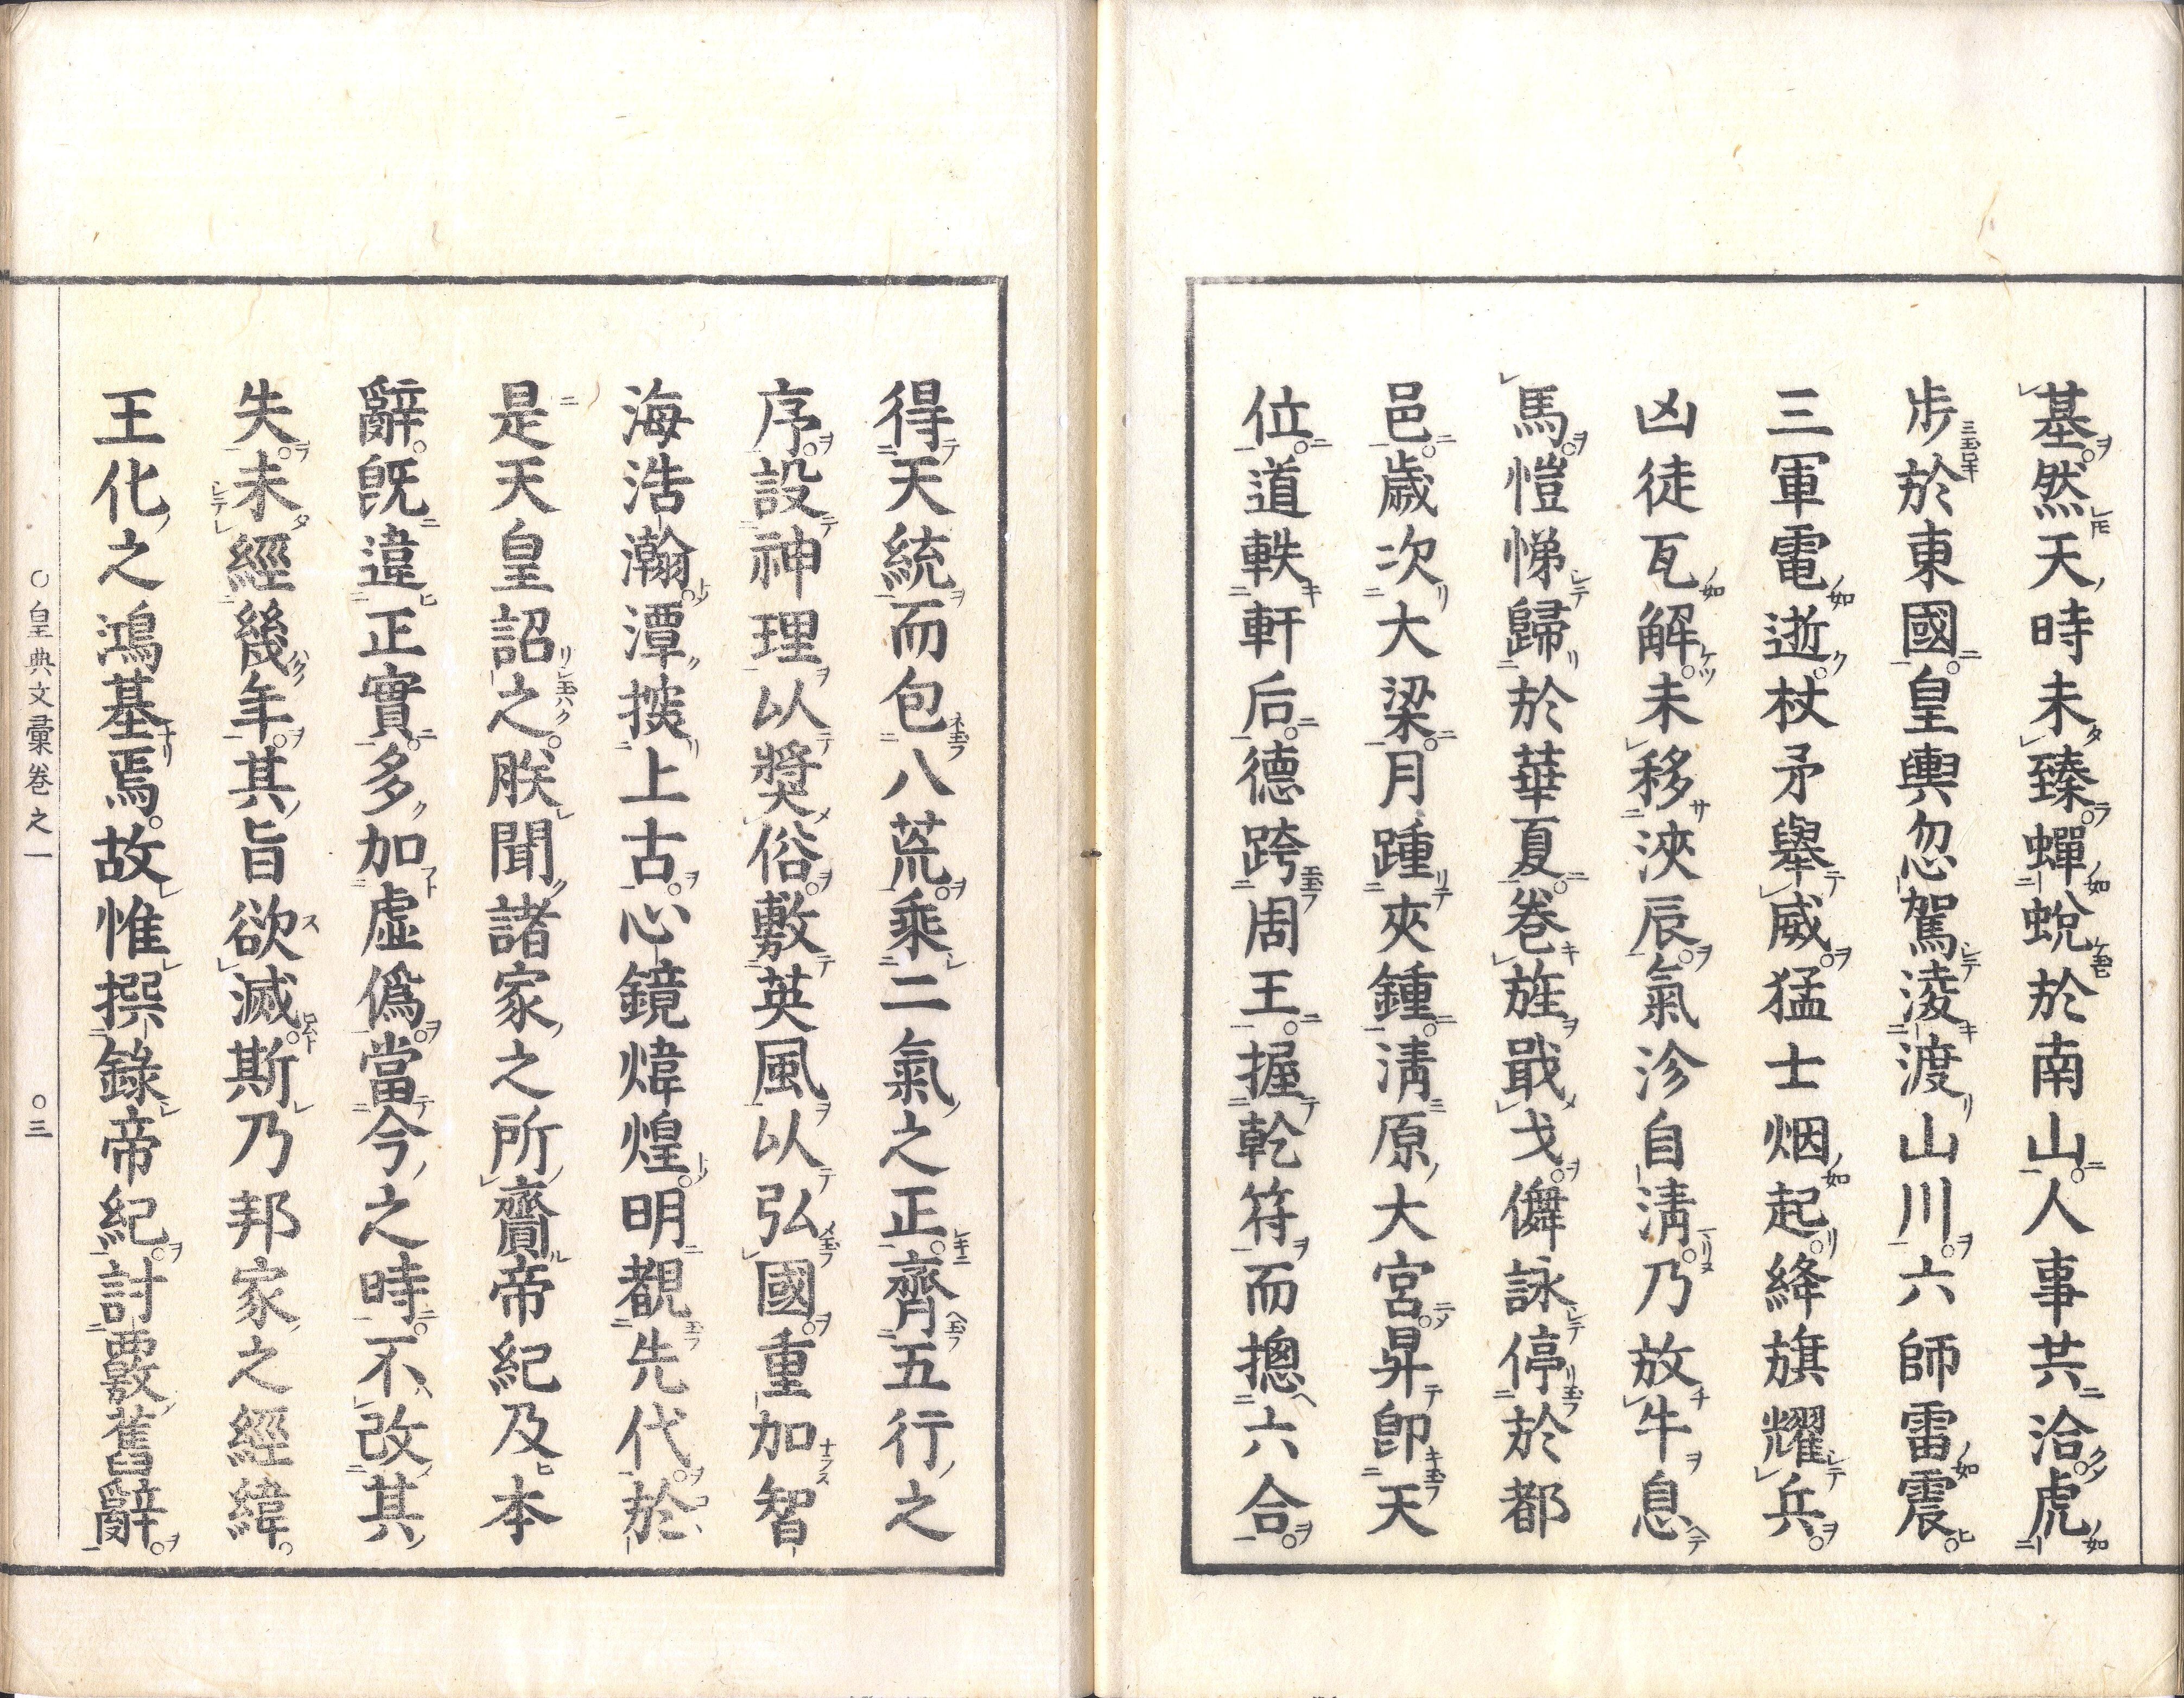 基。然天時未臻。蟬蛻於南山。人事共洽。虎
步於東國。皇輿忽駕淩渡山川。六師雷震。
三軍電逝。杖矛舉威。猛士烟起。絳旗耀兵。
凶徒瓦解。未移浹辰。氣沴自淸。乃放牛息
馬。愷悌歸於華夏。卷旌戢戈。儛詠停於都
邑。歲次大梁。月踵夾鍾。淸原大宮。昇卽天
位。道軼軒后。德跨周王。握乾符而摠六合。
得天統而包八荒。乘二氣之正。齊五行之
序。設神理以奬俗。敷英風以弘國。重加智
海浩瀚。潭探上古。心鏡煒煌。明覩先代。於
是天皇詔之。朕聞諸家之所齎帝紀及本
辭。既違正實。多加虛僞。當今之時。不改其
失。未經幾年。其旨欲滅。斯乃邦家之經緯。
王化之鴻基焉。故惟撰錄帝紀。討覈舊辭。
○皇典文彙卷之一 ○三